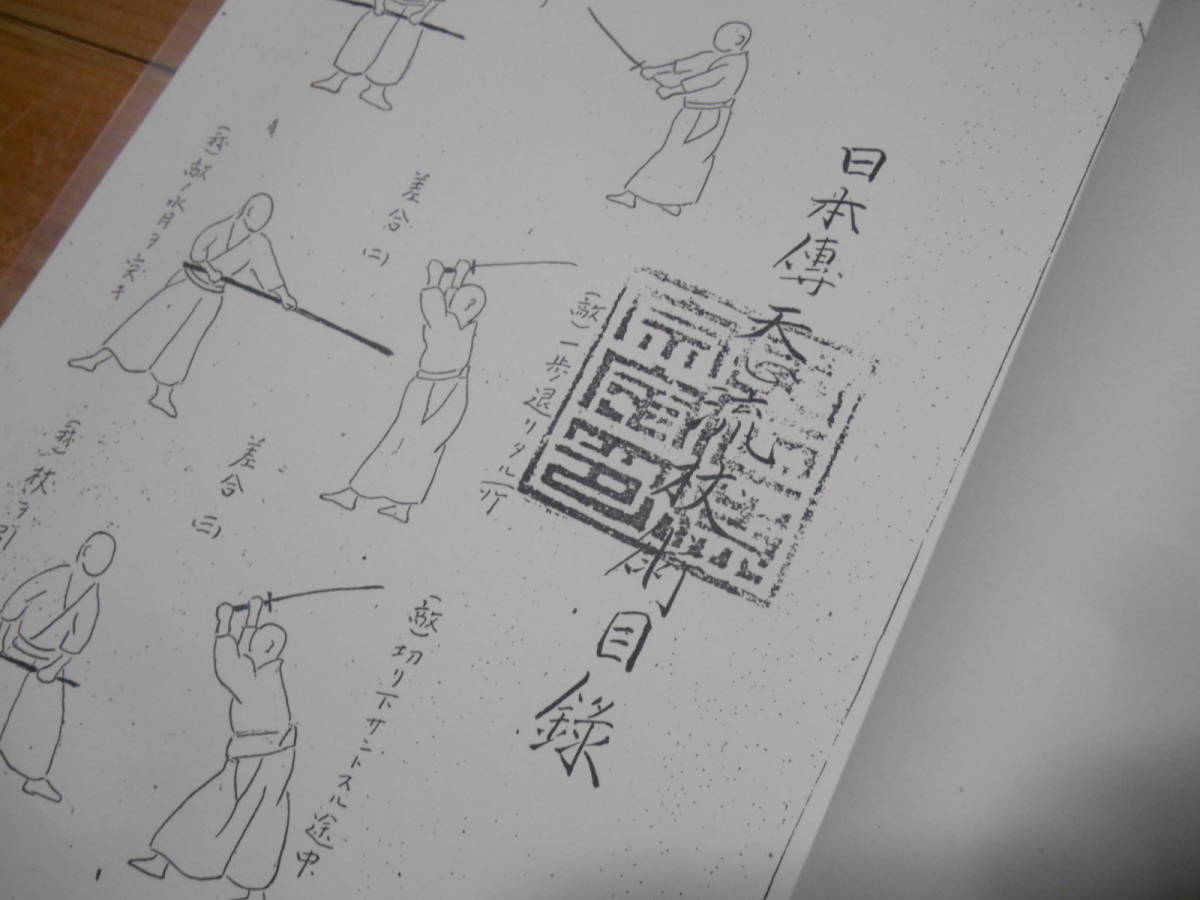 日本傳天心流杖術目録
差合(二)
(敵)一歩退リタル所
(我)敵ノ水月ヲ突キ
差合(三)
(敵)切リ下サントスル途中
(我)杖ヲ